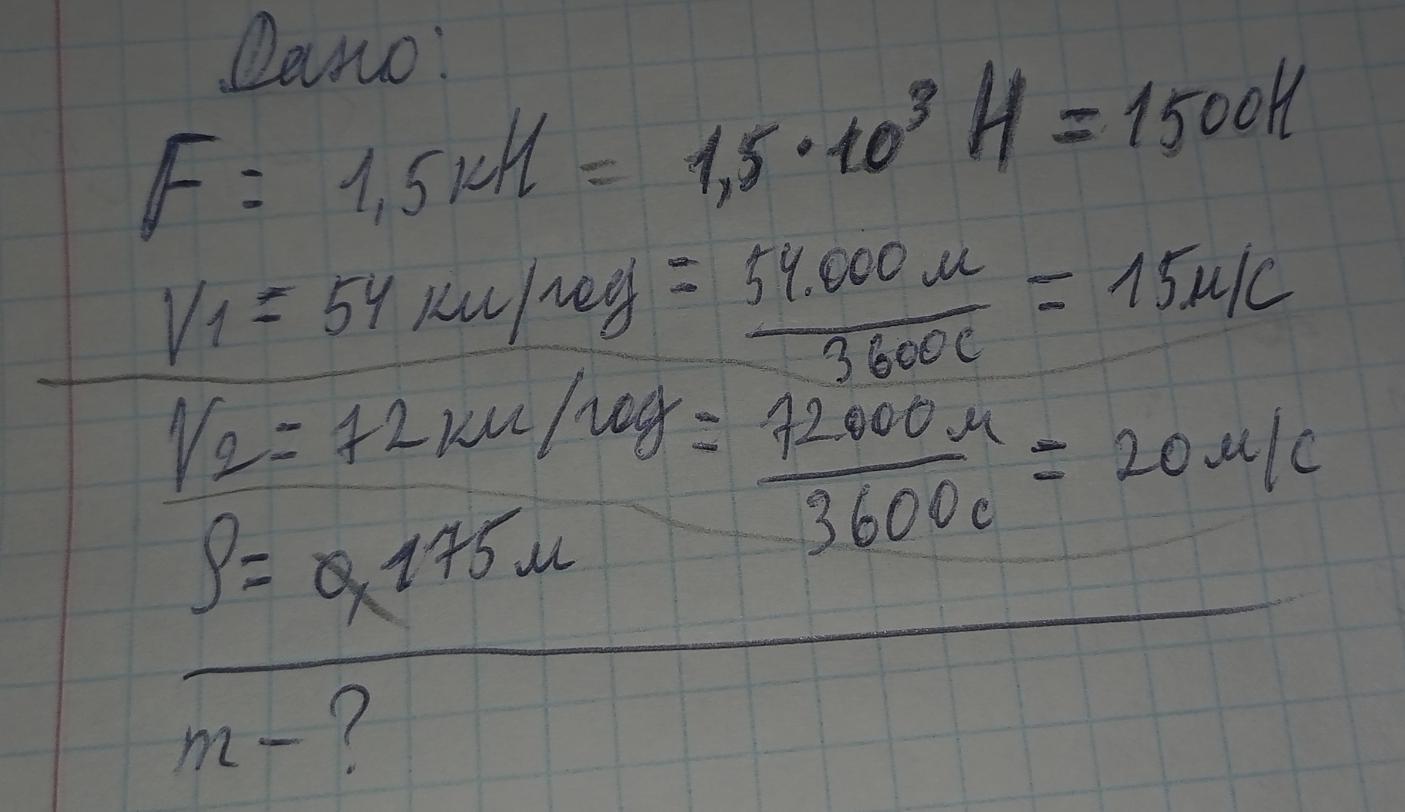 Дано:
F = 1,5кН = 1,5·10³ Н = 1500Н
V1 = 54 км/год = 54.000 м / 3600с = 15м/с
V2 = 72 км/год = 72000м / 3600с = 20м/с
S = 0,175м
m - ?